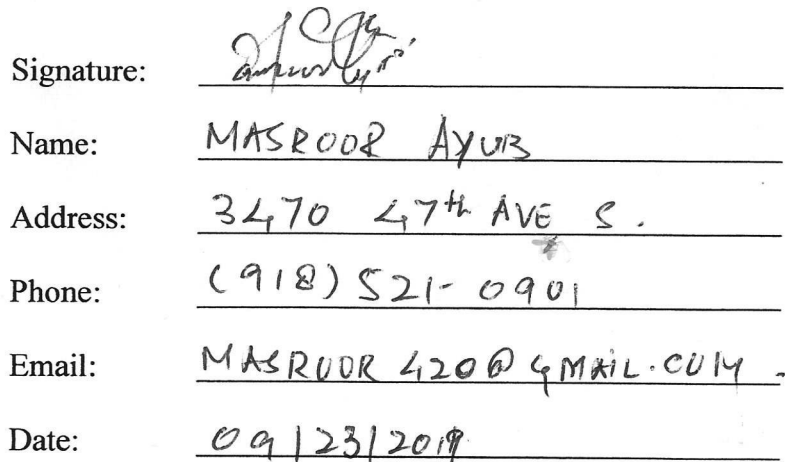 Signature:
Name: MASROOR AYUB
Address: 3470 47th AVE S.
Phone: (918) 521-0901
Email: MASROOR420@GMAIL.COM
Date: 09/23/2019